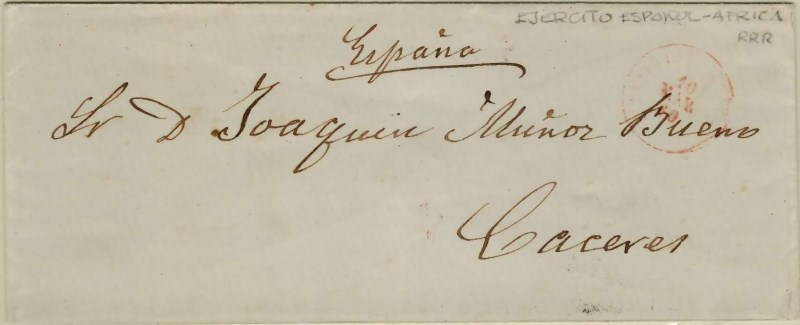 EJERCITO ESPAÑOL-AFRICA
RRR
España
Sr D Joaquin Muñoz Bueno
Caceres